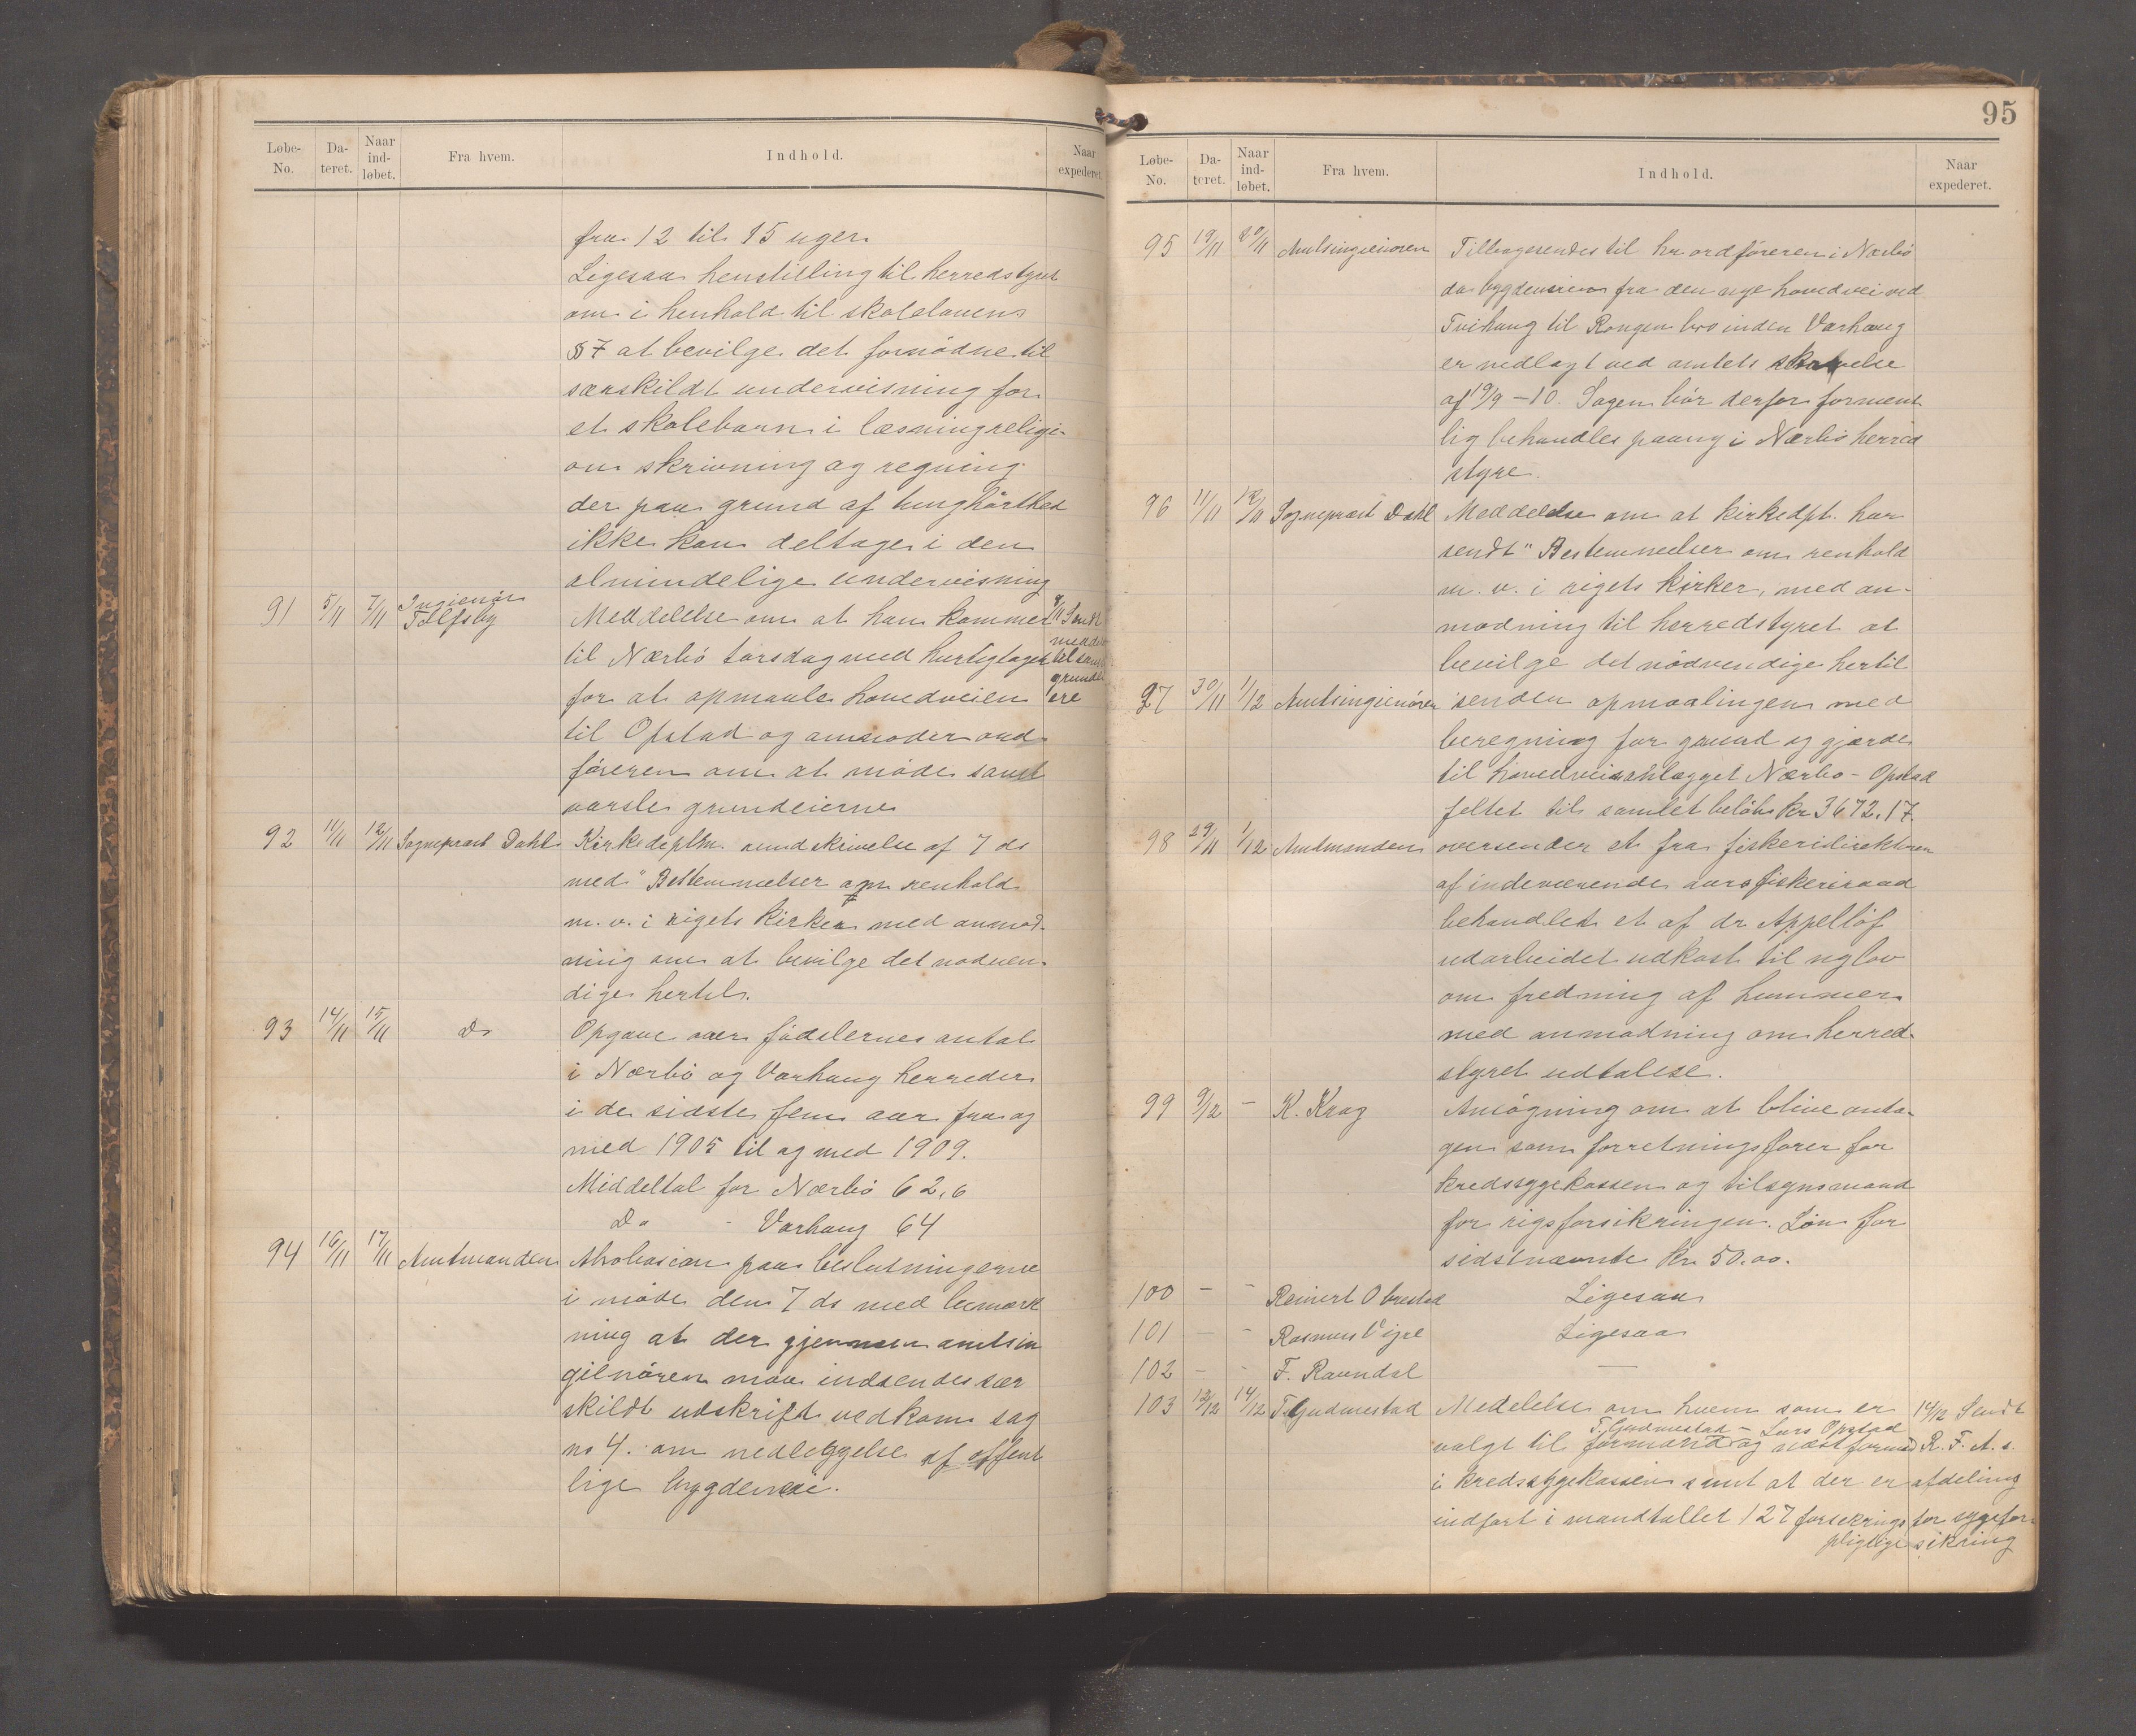 Løbe-No. Da-teret. Naar ind-løbet. Fra hvem. Indhold. Naar expederet.
fra 12 til 15 uger.
Ligesaa henstilling til herredstyret
om i henhold til skolelovens
§ 7 at bevilge det fornødne til
særskildt undervisning for
et skolebarn i læsning religi-
on skrivning og regning
der paa grund af tunghørthed
ikke kan deltage i den
almindelige undervisning
91 5/11 7/11 Ingeniør Tolfsby Meddelelse om at han kommer 9/11 Sendt
til Nærbø torsdag med hurtigtoget
for at opmaale hovedveien
til Opstad og anmoder ord
føreren om at møde samt
varsle grundeierne
92 11/11 12/11 Sogneprest Dahl Kirkedeptm. rundskrivelse af 7 ds
med "Bestemmelser om renhold
m. v. i rigets kirker med anmod-
ning om at bevilge det nødven-
dige hertil.
93 14/11 15/11 Do Opgave over fødslernes antal
i Nærbø og Varhaug herreder
i de sidste fem aar fra og
med 1905 til og med 1909.
Middeltal for Nærbø 62,6
Do - Varhaug 64
94 16/11 17/11 Amtmanden Abrobasion paa beslutningerne
i møde den 7 ds med bemærk
ning at der gjennem amtsin
geniøren maa indsendes sær
skildt udskrift vedkom sag
no 4. om nedleggelse af offent
lige bygdeveie.
95
Løbe-No. Da-teret. Naar ind-løbet. Fra hvem. Indhold. Naar expederet.
95 19/11 20/11 Amtsingeniøren Tilbagesendes til hr ordføreren i Nærbø
da bygdeveien fra den nye hovedvei ved
Tvihaug til Rongen bro inden Varhaug
er nedlagt ved amtets skrivelse
af 19/9 - 10. Sagen bør derfor forment
lig behandles paany i Nærbø herred
styre.
96 11/11 12/11 Sogneprest Dahl Meddelelse om at kirkedpt. har
sendt "Bestemmelser om renhold
m. v. i rigets kirker, med an-
modning til herredstyret at
bevilge det nødvendige hertil
97 30/11 1/12 Amtsingeniøren sender opmaalingen med
beregning for grund og gjærde
til hovedveianlægget Nærbø - Opstad
feltet til samlet beløb Kr 3672.17.
98 29/11 1/12 Amtmanden oversender et fra fiskeridirektøren
af indeværende aars fiskeriraad
behandlet et af dr Appelløf
udarbeidet udkast til ny lov
om fredning af hummer
med anmodning om herred-
styret udtalese.
99 9/12 - K. Krag Ansøgning om at blive anta-
gen som forretningsfører for
kredssygekassen og tilsynsmand
for rigsforsikringen. Løn for
sidstnævnte Kr 50.00.
100 - - Reinert Obrestad Ligesaa
101 - - Rasmus Vigre Ligesaa
102 - - F. Raundal —
103 12/12 14/12 T. Gudmestad Medelelse om hvem som er 14/12 Sendt
T. Gudmestad - Lars Opstad
valgt til formand og næstformd R. F. A.s.
i kredssygekassen samt at der er afdeling
indført i mandtallet 127 forsekrings for sygefor-
pligtige sikring